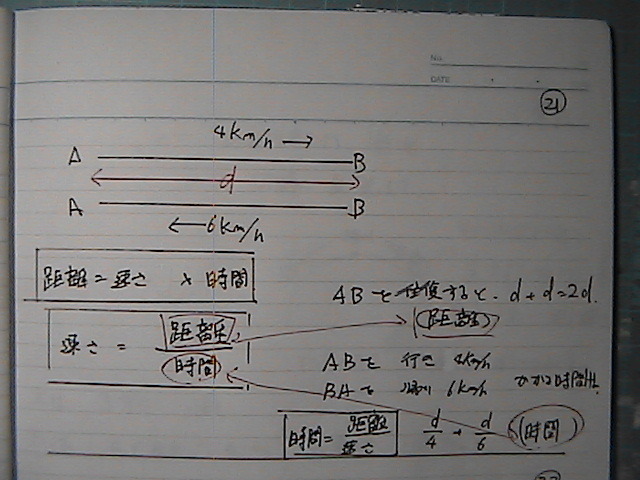 No.
DATE
21
4km/h →
A B
← d →
A B
← 6km/h
距離 = 速さ × 時間
ABを往復すると、d+d=2d.
速さ = 距離/時間
(距離)
ABを 行き 4km/h
BAを 帰り 6km/h かかる時間は.
時間 = 距離/速さ d/4 + d/6 (時間)